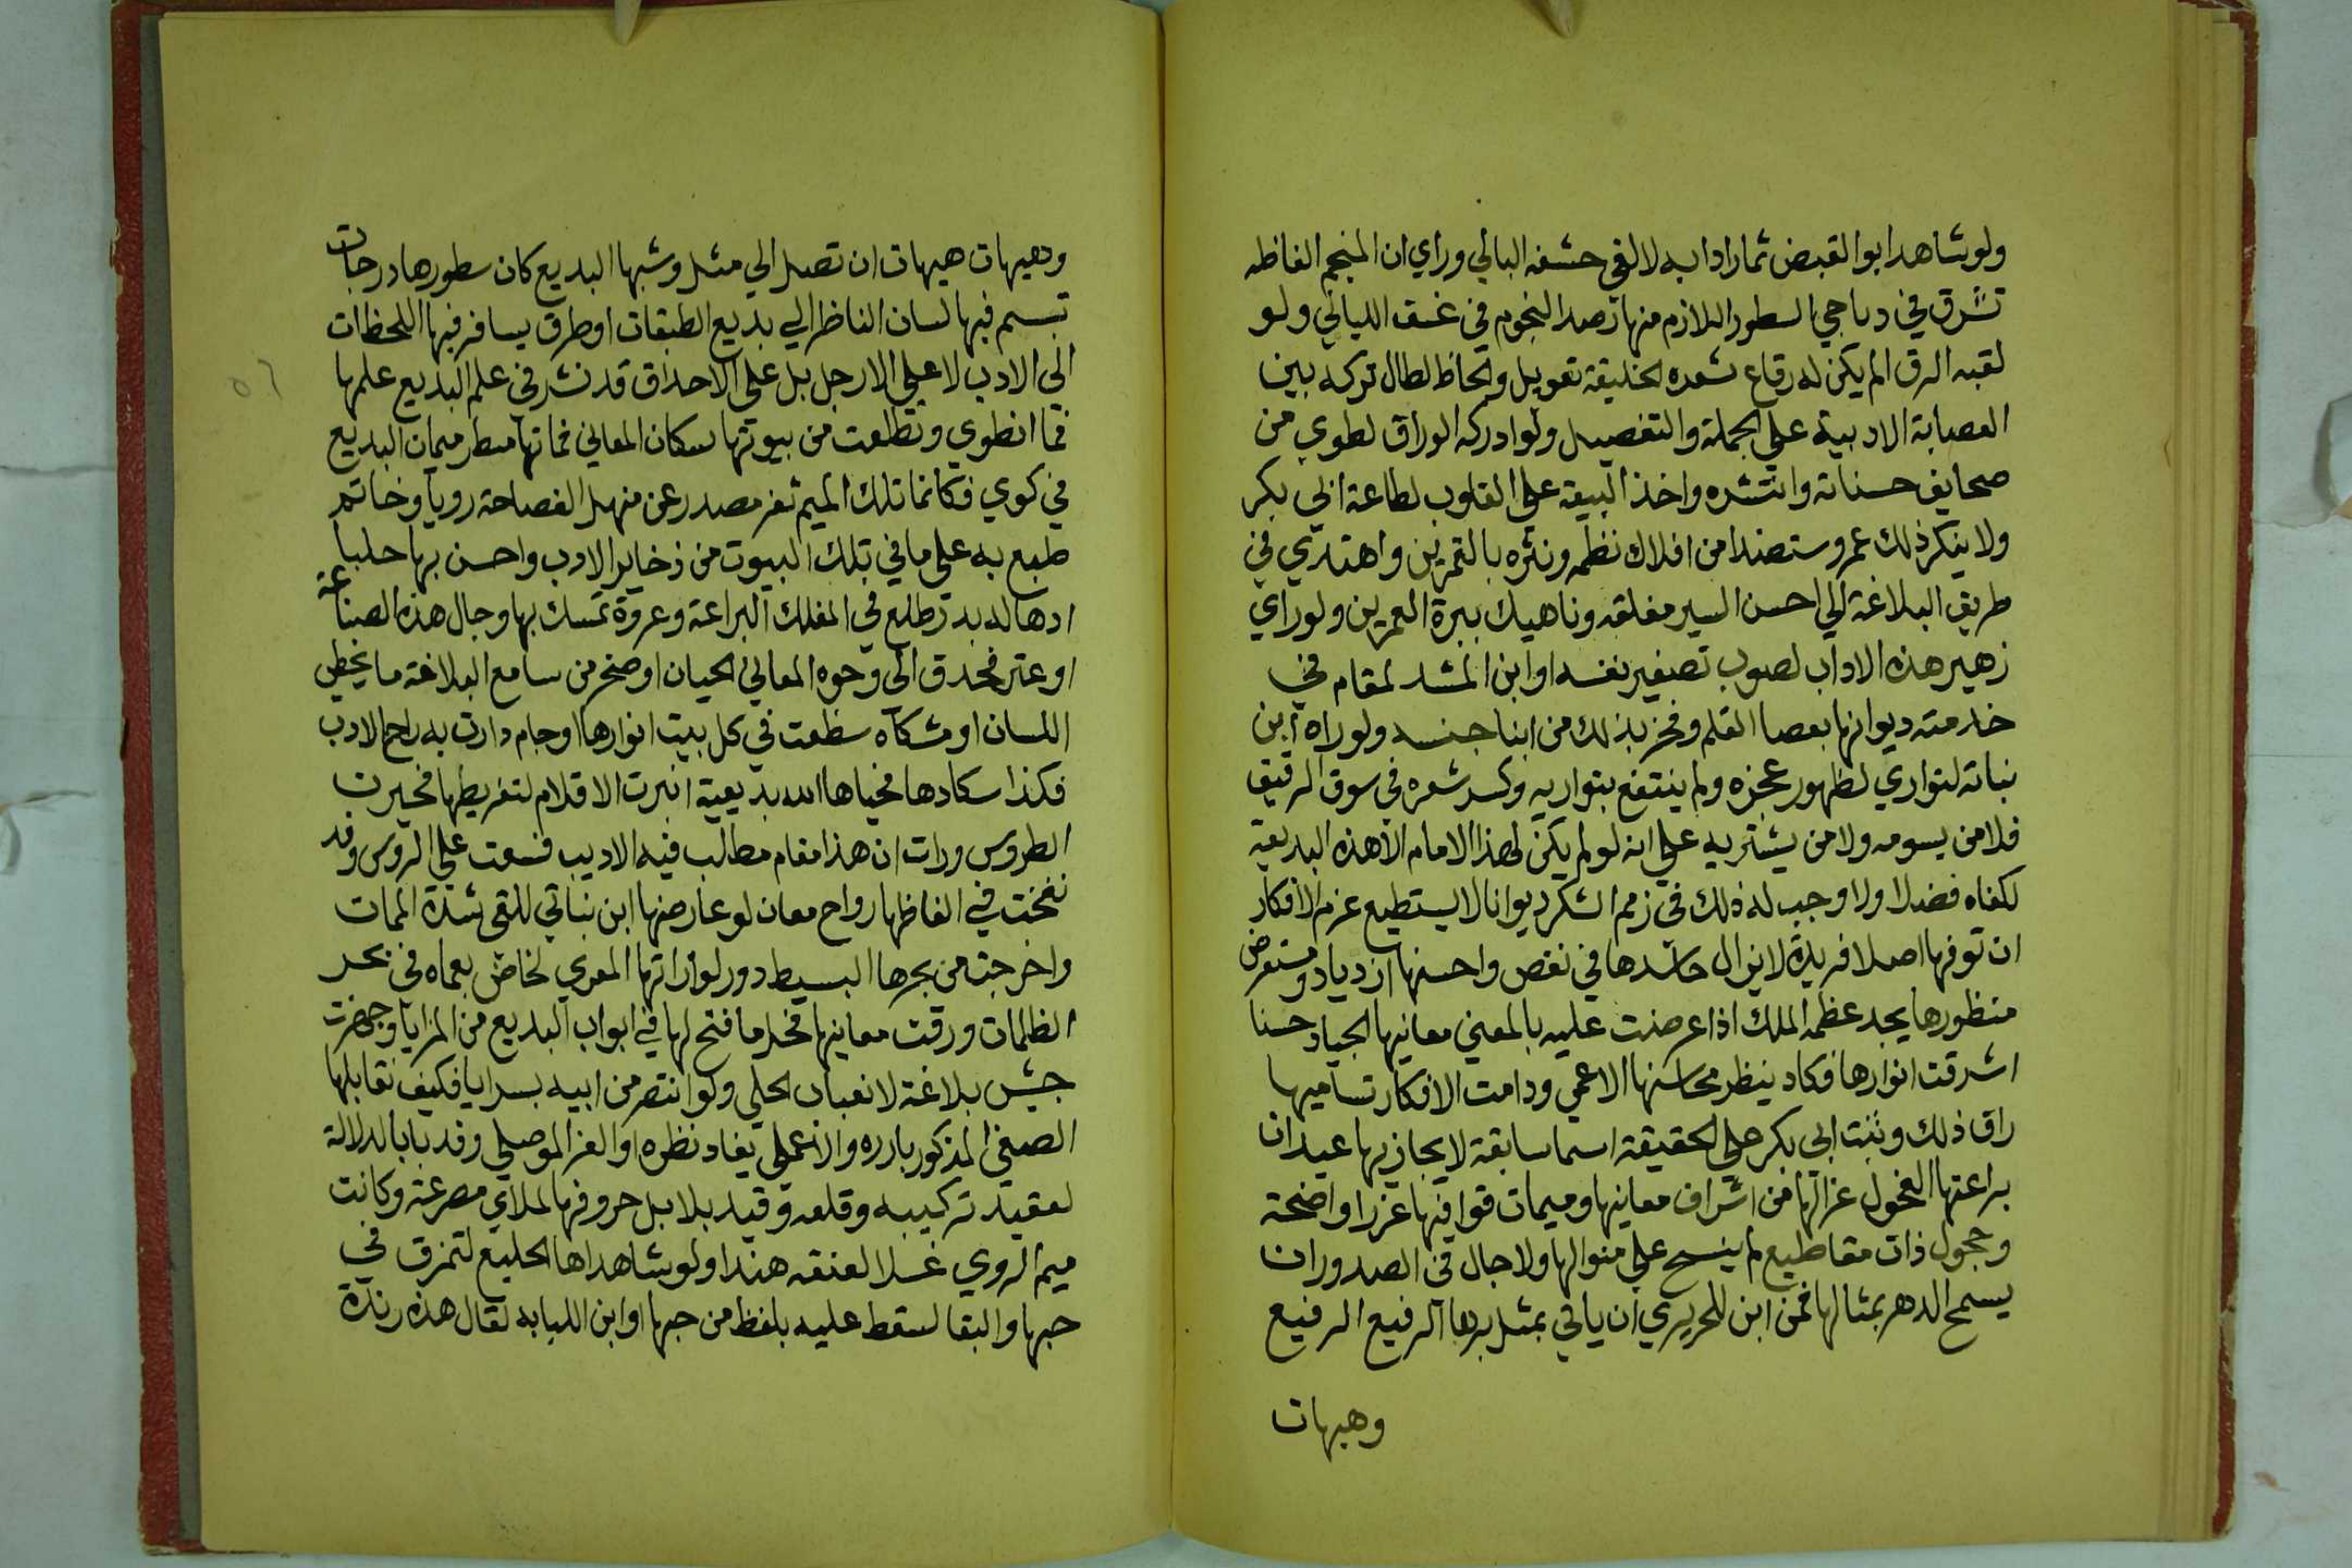 ولو شاهد ابو القبض ثمار ادابه لالقى حشفه البالي وراي ان المنجم الفاظه
تشرق في دياجي السطور اللازم منها ترصد النجوم في غسف الليالي ولو
لقبه الرق الم يكن له رقاع شعره الخليقة تعويل والحاظ لطال تركه بين
العصابة الادبية على الجملة والتفصيل ولو ادركه الوراق لطوي من
صحايف حسناته وانتشره واخذ البيعة على القلوب لطاعة ابي بكر
ولا ينكر ذلك عمر وستضندا من افلاك نظمه ونثره بالقمرين واهتدي في
طريق البلاغة الي احسن السير مغلقه وناهيك ببرة العمرين ولو راي
زهير هذه الاداب لصوب تصغير نفسه او ابن المشد لمقام في
خدمته ديوانها بعصا القلم وفخر بذلك من ابنا جنسه ولو راه ابن
نباته لتواري لظهور عجزه ولم ينتفع بتواريه وكسد شعره في سوق الرقيق
فلا من يسومه ولا من يشتريه على انه لو لم يكن لهذا الامام الا هذه البديعية
لكفاه فضلا ولا وجب له ذلك في زمم الشكر ديوانا لا يستطيع عزم الافكار
ان توفيها اصلا فريدة لا يزال حاسدها في نقص واحسنها ازدياد ومستعرض
منظورها يجد عظمه الملك اذا عرضت عليه بالمعني معانيها الجياد حسنا
اشرقت انوارها فكاد ينظر محاسنها الاعمي ودامت الافكار تساميها
راق ذلك وثبت ابي بكر على الحقيقة اسما سابقة لا يجاز بها عيدان
براعتها الفحول غزالها من اشراف معانيها وميمات قوافيها غررا واضحة
وحجول ذات مقاطيع لم ينسج على منوالها ولا جال في الصدور ان
يسمح الدهر بمثالها فمن ابن للحريري ان ياتي بمثل برها الرفيع الرفيع
وهيهات
وهيهات هيهات ان تصل الي مثل وشبها البديع كان سطورها درجات
تسم فيها لسان الناظر الي بديع الطبقات او طرق يسافر فيها اللحظات
الى الادب لا على الارجل بل على الاحداق قد نشر في علم البديع علمها
فما انطوي وتطلعت من بيوتها سكان المعاني فماتها مطر ميمان البديع
في كوي فكانما تلك الميم ثغر مصدر عن منهل الفصاحة رويا وخاتم
طبع به على ما في تلك البيوت من ذخاير الادب واحسن بها حليا
ادهاله بدر طلع في المفلك البراعة وعروة تمسك بها وجال هذه الصناعة
او عتر فحدق الى وحوه المعالي الحيان او صخر من سامع البلاغة ما يخطي
اللسان او مشكاه سطعت في كل بيت انوارها او جام دارت به راح الادب
فكذا سكادها فحياها الله بديعية انبرت الاقلام لتفريظها فحيرت
الطروس ورات ان هذا مقام مطالب فيه الاديب فسعت على الروس وقد
نفخت في الفاظها رواح معان لو عارضها ابن نباتي للقى شدة الممات
واخرجت من بحرها البسيط دور لو اراتها المعري لخاض بعماه في بحر
الظلمات ورقت معاينها فخلد ما فتح لها في ابواب البديع من المزايا وجهزت
جيش بلاغة لا نعبان الحلي ولو انتصر من ابيه بسرايا فكيف تقابلها
الصفى المذكور بارره والاعملي يغاد نظره او العز الموصلي وقد بابا لدلالة
لعقيد تركيبه وقلعه وقيد بلابل حروفها لملاي مصرعة وكانت
ميم الروي غلا لعنقه هندا ولو شاهداها الحليع لتمزق في
حبها والبقا لسقط عليه بلفظ من حبها او ابن اللبابه لقال هذه رندة
٥٦